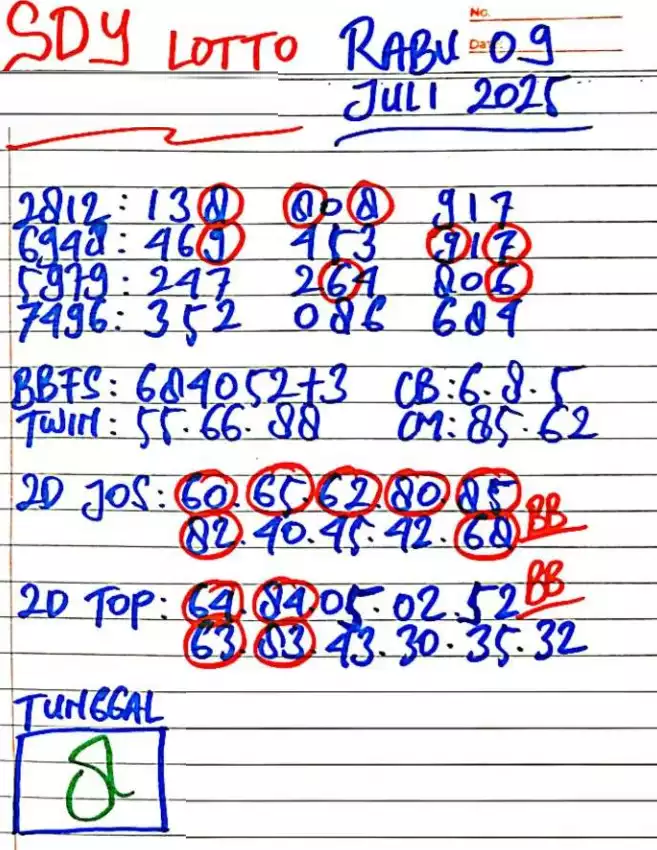 No.
SDY LOTTO RABU Da 09
JULI 2025
2812: 138 808 917
6948: 469 453 917
5979: 247 264 806
7496: 352 086 684
BBFS: 684052+3 CB:6.8.5
TWIN: 55.66.88 CM:85.62
2D JOS: 60.65.62.80.85
82.40.45.42.68 BB
2D TOP: 64.84.05.02.52 BB
63.83.43.30.35.32
TUNGGAL
8